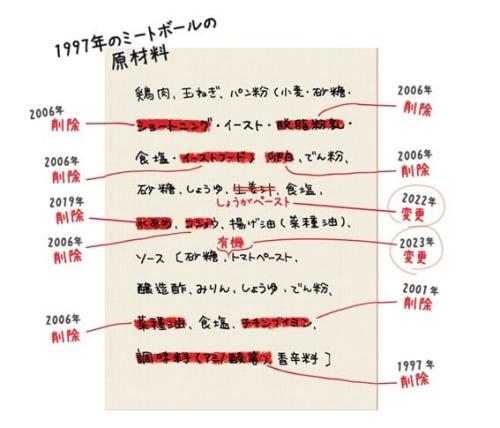 1997年のミートボールの
原材料
鶏肉、玉ねぎ、パン粉(小麦・砂糖・
2006年
削除
2006年
削除
ショートニング・イースト・脱脂粉乳・
2006年
削除
2006年
削除
食塩・イーストフード)卵白、でん粉、
砂糖、しょうゆ、生姜汁、食塩、
しょうがペースト
2022年
変更
2019年
削除
水あめ、コショウ、揚げ油(菜種油)、
2006年
削除
有機
2023年
変更
ソース〔砂糖、トマトペースト、
醸造酢、みりん、しょうゆ、でん粉、
2001年
削除
2006年
削除
菜種油、食塩、チキンブイヨン、
調味料(アミノ酸等)、香辛料〕
1997年
削除